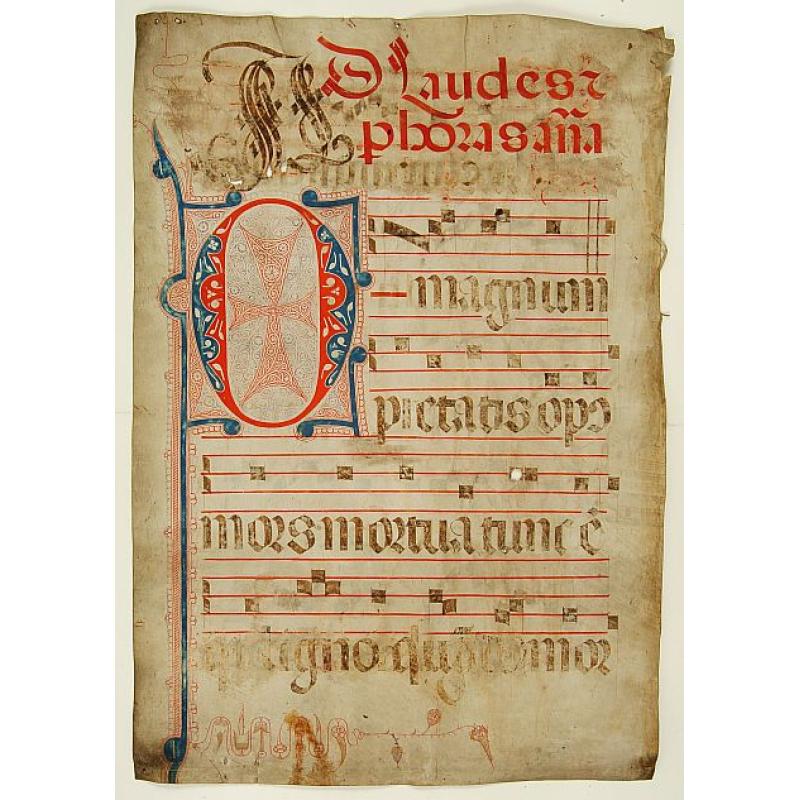 AD laudes 7
p horas añā
O magnum
pietatis opꝰ
mors mortua tunc ē
in ligno qn̄ mor